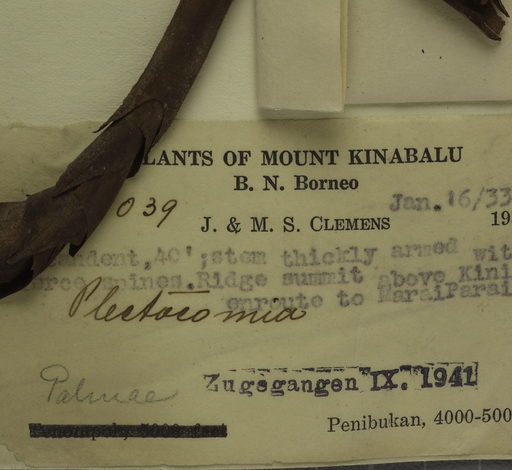 LANTS OF MOUNT KINABALU
B. N. Borneo
Jan. 16/33
039
J. & M. S. CLEMENS 19
endent, 40'; stem thickly armed wit
erce spines. Ridge summit above Kini
enroute to MaraiParai
Plectocomia
Zugegangen IX. 1941
Palmae
Penibukan, 4000-500